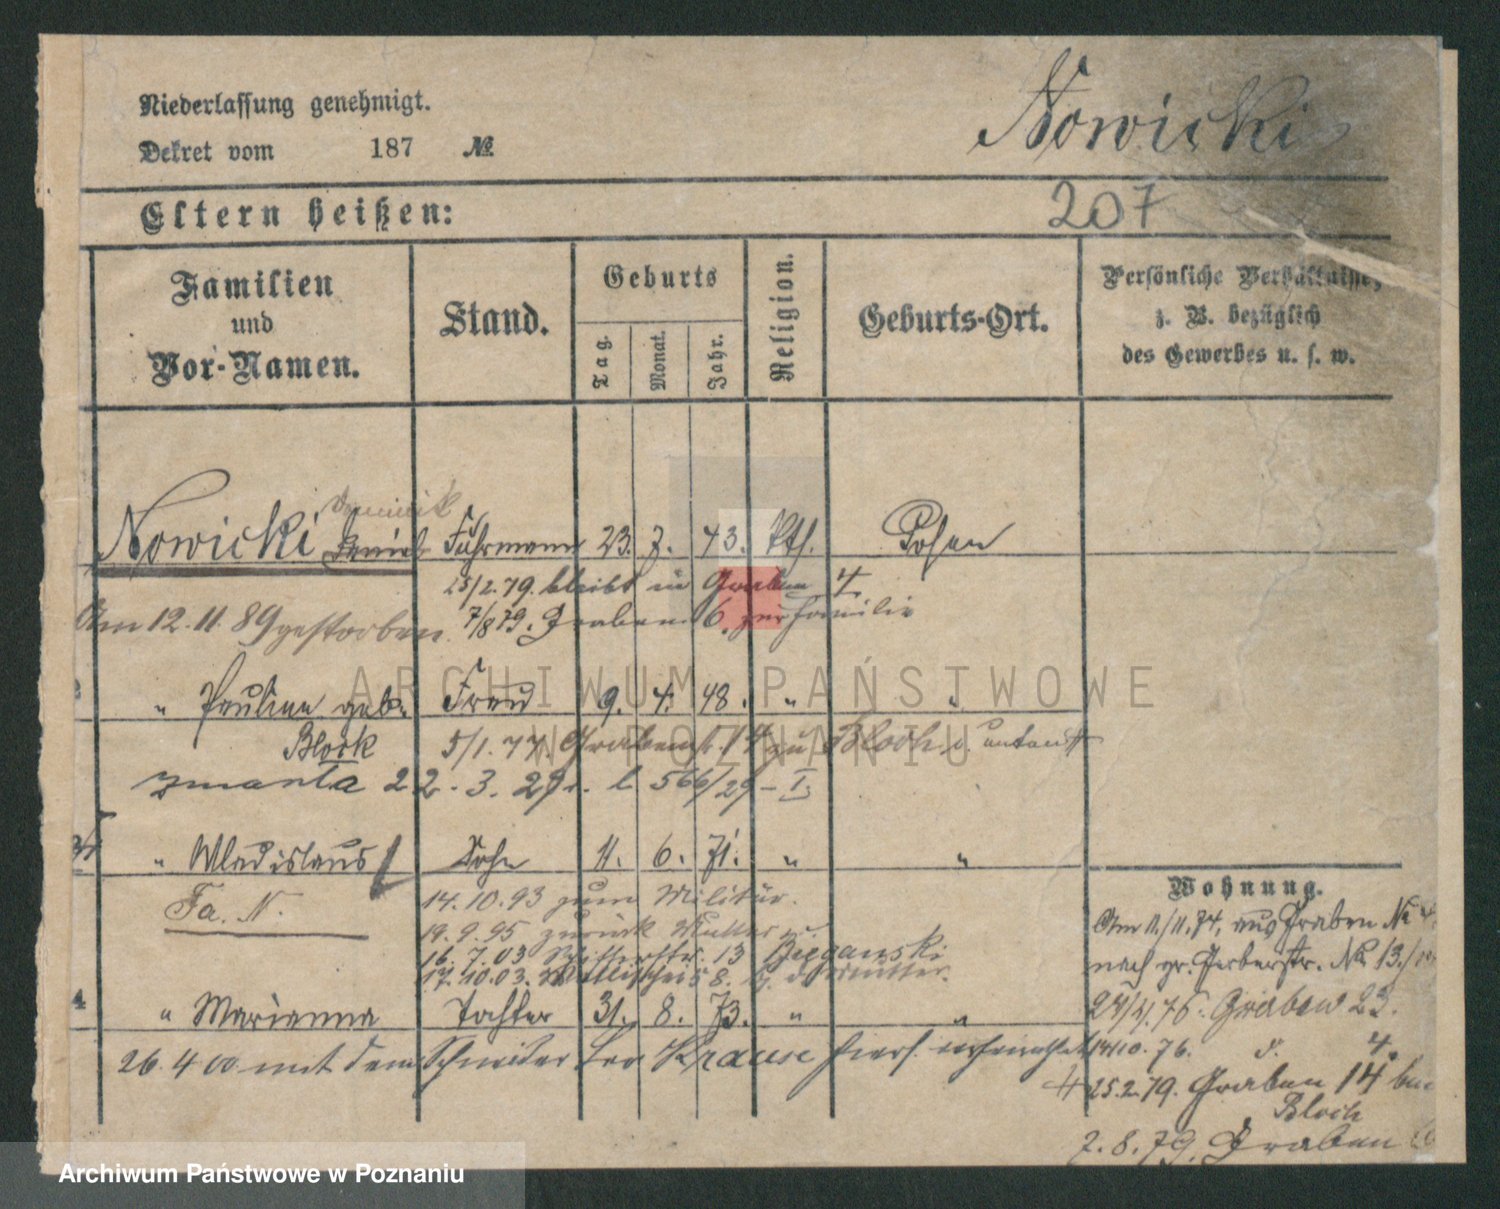 Niederlassung genehmigt.
Nowicki
Dekret vom 187 №
207
Eltern heißen:
Familien und Vor-Namen.
Stand.
Geburts
Tag.
Monat.
Jahr.
Religion.
Geburts-Ort.
Persönliche Verhältnisse,
z. B. bezüglich
des Gewerbes u. s. w.
Dominik
Nowicki Daniel Fuhrmann 23. 7. 43. Kth. Posen
25/2.79. bleibt in Graben 4
Am 12.11.89 gestorben. 7/8 79. Graben 6. zur Familie
" Pauline geb. Frau 9. 4. 48. "
Block 5/1.77. Grabenstr. 14 zu Bloch
zmarła 22.3.29 r. l 566/29 - I.
" Wladislaus Sohn 11. 6. 71. " "
Fa. N. 14.10.93 zum Militär.
19.9.95 zurück Mutter
16.7.03 13
17.10.03. 8. Mutter.
4 " Marianna Tochter 31. 8. 73. " "
26.4 00 mit dem Schneider Leo Krause hiers. verheirathet
Wohnung.
Am 11./11.74. aus Graben №
nach gr. Gerberstr. № 13.
Graben 23.
14/10.76. d. 4.
25.2.79. Graben 14 bei
Bloch
7.8.79. Graben
ARCHIWUM PAŃSTWOWE
W POZNANIU
Archiwum Państwowe w Poznaniu